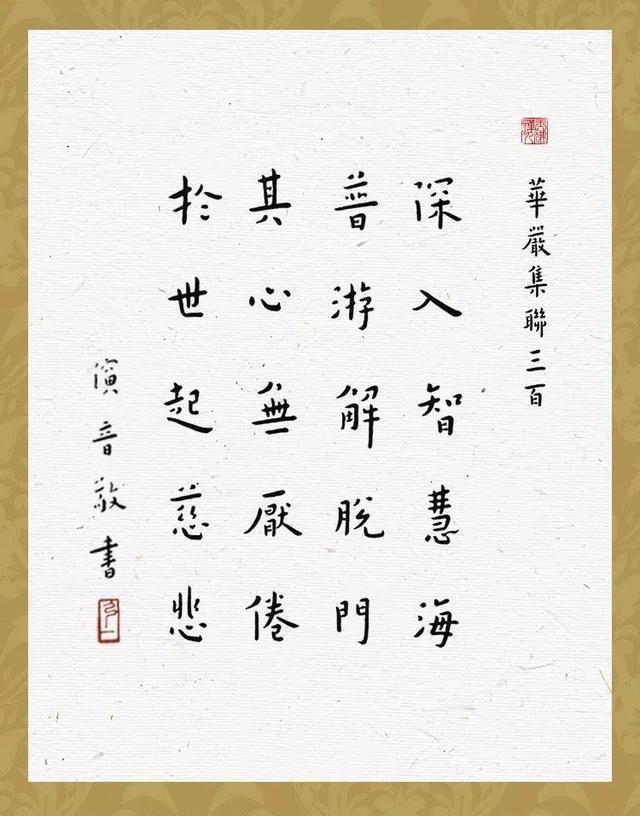 華嚴集聯三百
深入智慧海
普游解脫門
其心無厭倦
於世起慈悲
演音敬書